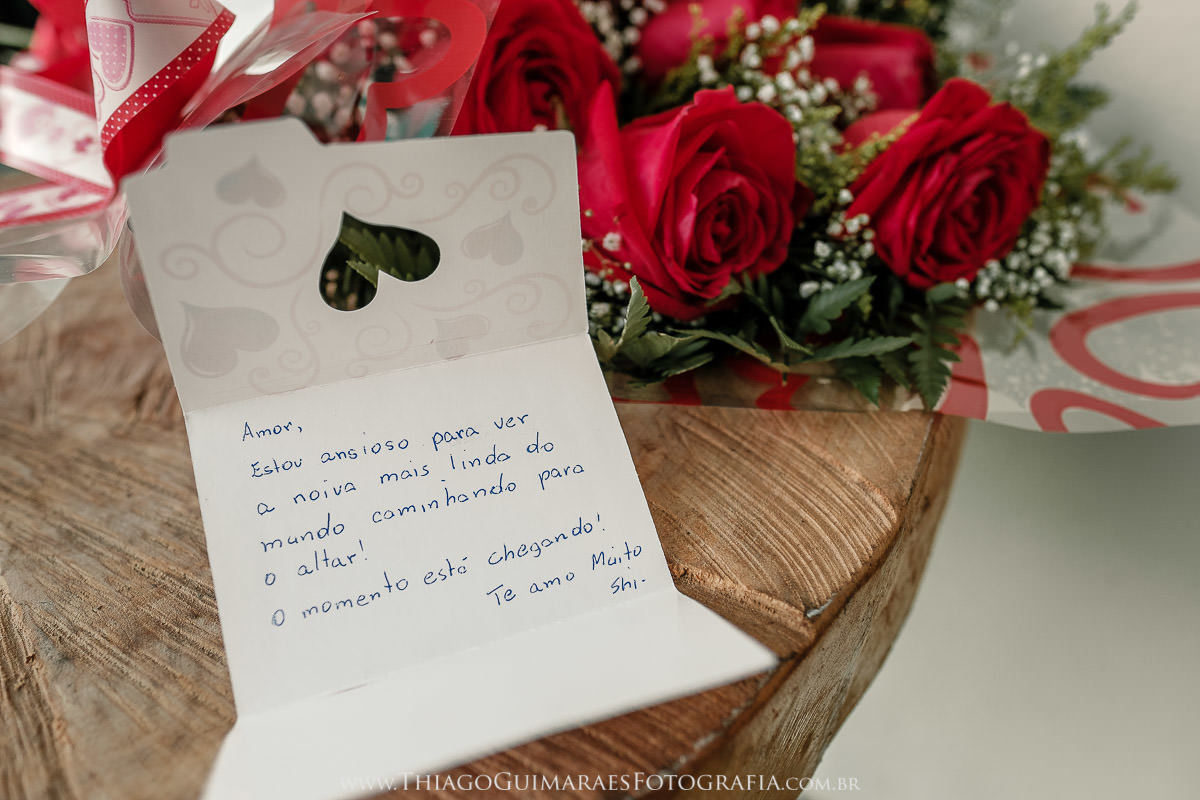 Amor,
Estou ansioso para ver
a noiva mais linda do
mundo caminhando para
o altar!
O momento está chegando!
Te amo Muito
Shi.
www.ThiagoGuimaraesFotografia.com.br